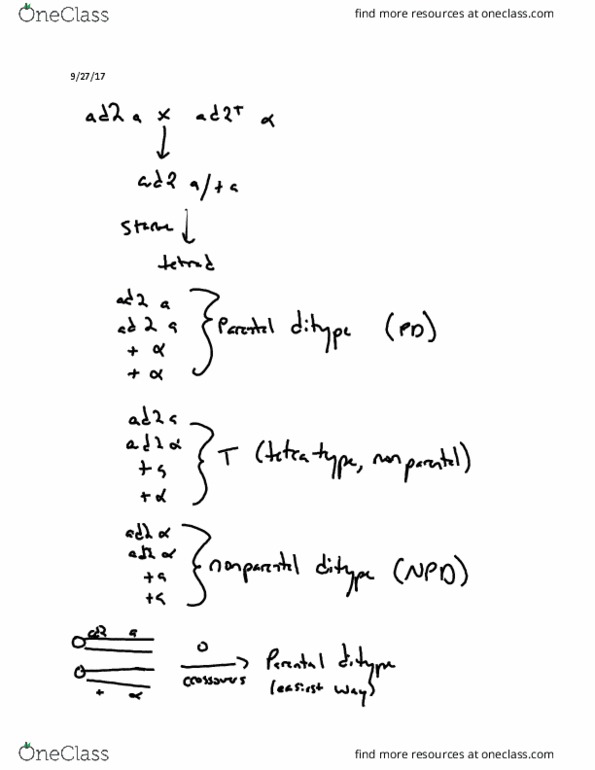 OneClass
find more resources at oneclass.com
9/27/17
ad2 a x ad2⁺ α
ad2 a/+ a
starve
tetrad
ad2 a
ad2 a
+ α
+ α
Parental ditype (PD)
ad2 a
ad2 α
+ a
+ α
T (tetra type, non parental)
ad2 α
ad2 α
+ a
+ a
nonparental ditype (NPD)
ad2 a
+ α
0
crossovers
Parental ditype
(easiest way)
OneClass
find more resources at oneclass.com